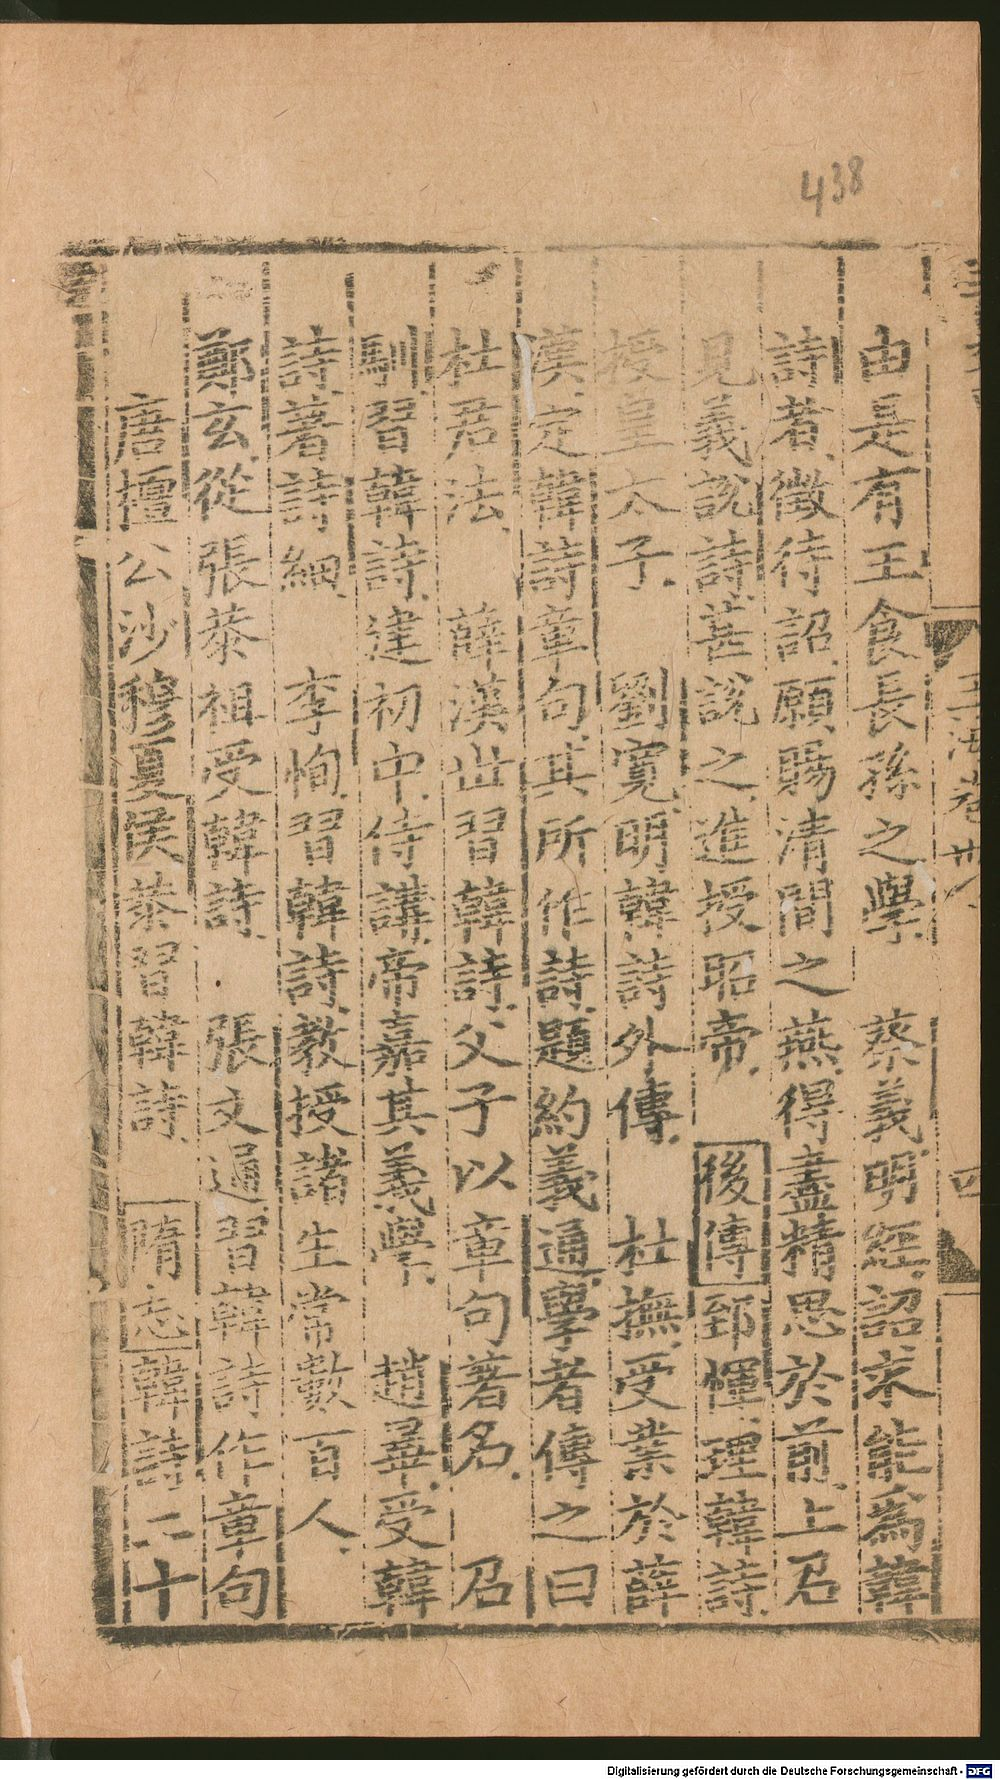 438
由是有王食長孫之學　蔡義明經詔求能為韓
詩者徵待詔願賜清閒之燕得盡精思於前上召
見義說詩甚說之進授昭帝　後傳郅惲理韓詩
授皇太子　劉寬明韓詩外傳　杜撫受業於薛
漢定韓詩章句其所作詩題約義通學者傳之曰
杜君法　薛漢世習韓詩父子以章句著名　召
馴習韓詩建初中侍講帝嘉其義學　趙曅受韓
詩著詩細　李恂習韓詩教授諸生常數百人
鄭玄從張恭祖受韓詩　張文通習韓詩作章句
唐檀公沙穆夏侯恭習韓詩　隋志韓詩二十
玉海卷卅八
四
Digitalisierung gefördert durch die Deutsche Forschungsgemeinschaft - DFG